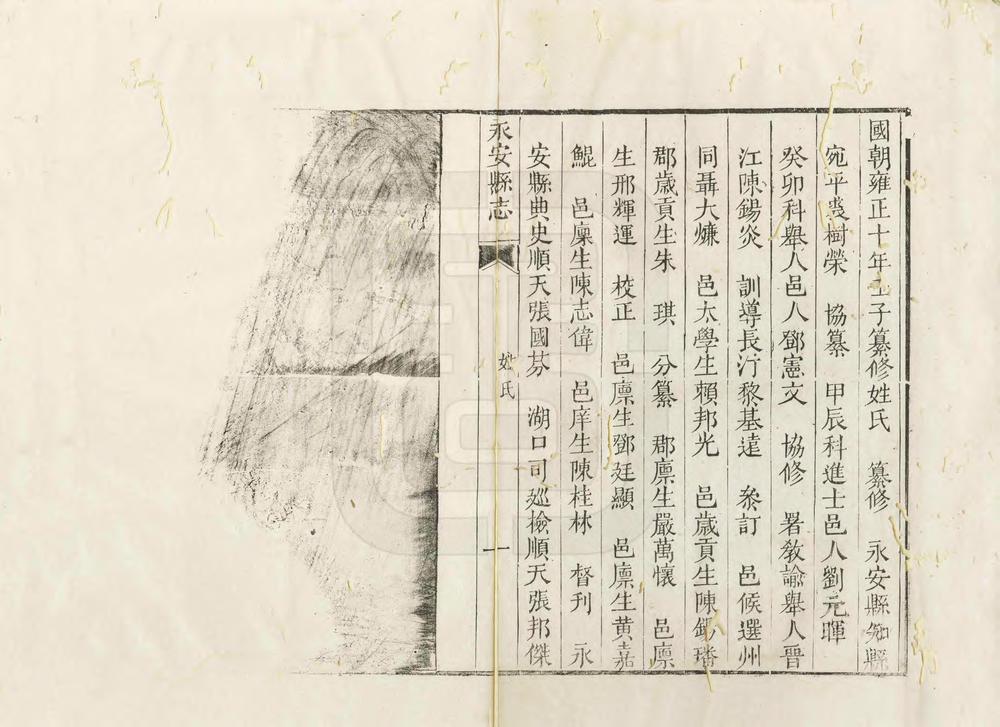 國朝雍正十年壬子纂修姓氏　纂修　永安縣知縣
宛平裘樹榮　協纂　甲辰科進士邑人劉元暉
癸卯科舉人邑人鄧憲文　協修　署敎諭舉人晋
江陳錫炎　訓導長汀黎基遠　叅訂　邑候選州
同聶大㷂　邑太學生賴邦光　邑歲貢生陳錫璠
郡歲貢生朱　琪　分纂　郡廪生嚴萬懷　邑廪
生邢輝運　校正　邑廪生鄧廷顯　邑廪生黄嘉
鯤　邑廪生陳志偉　邑庠生陳桂林　督刋　永
安縣典史順天張國芬　湖口司廵檢順天張邦傑
永安縣志　姓氏　一